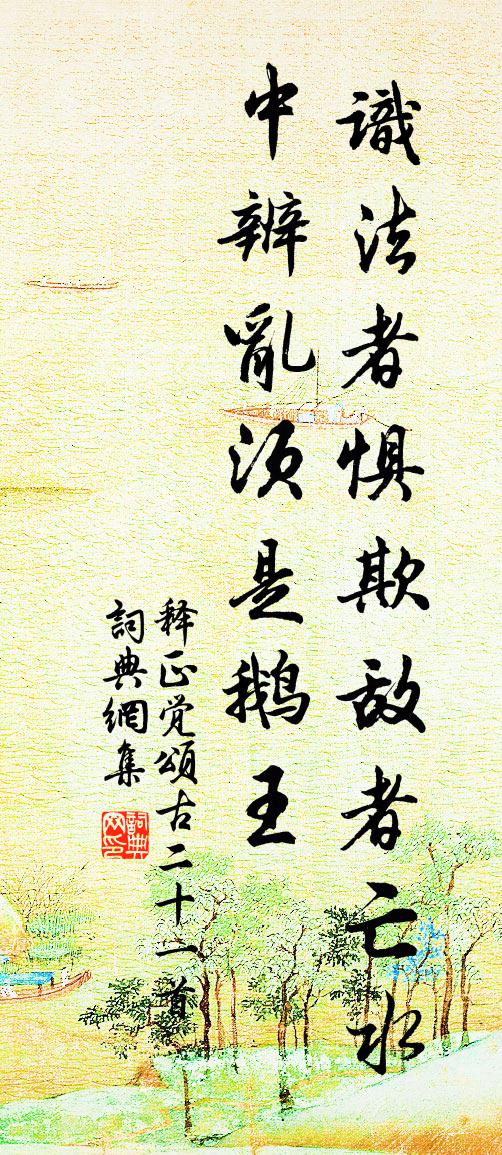 識法者惧欺敌者亡水
中辨亂须是鹅王
释正觉頌古二十一首
詞典網集
詞典
网印